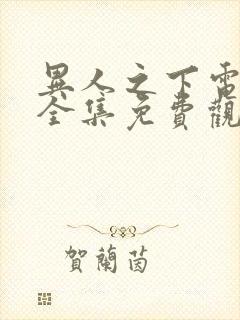 異人之下電
全集免費觀
賀蘭茵